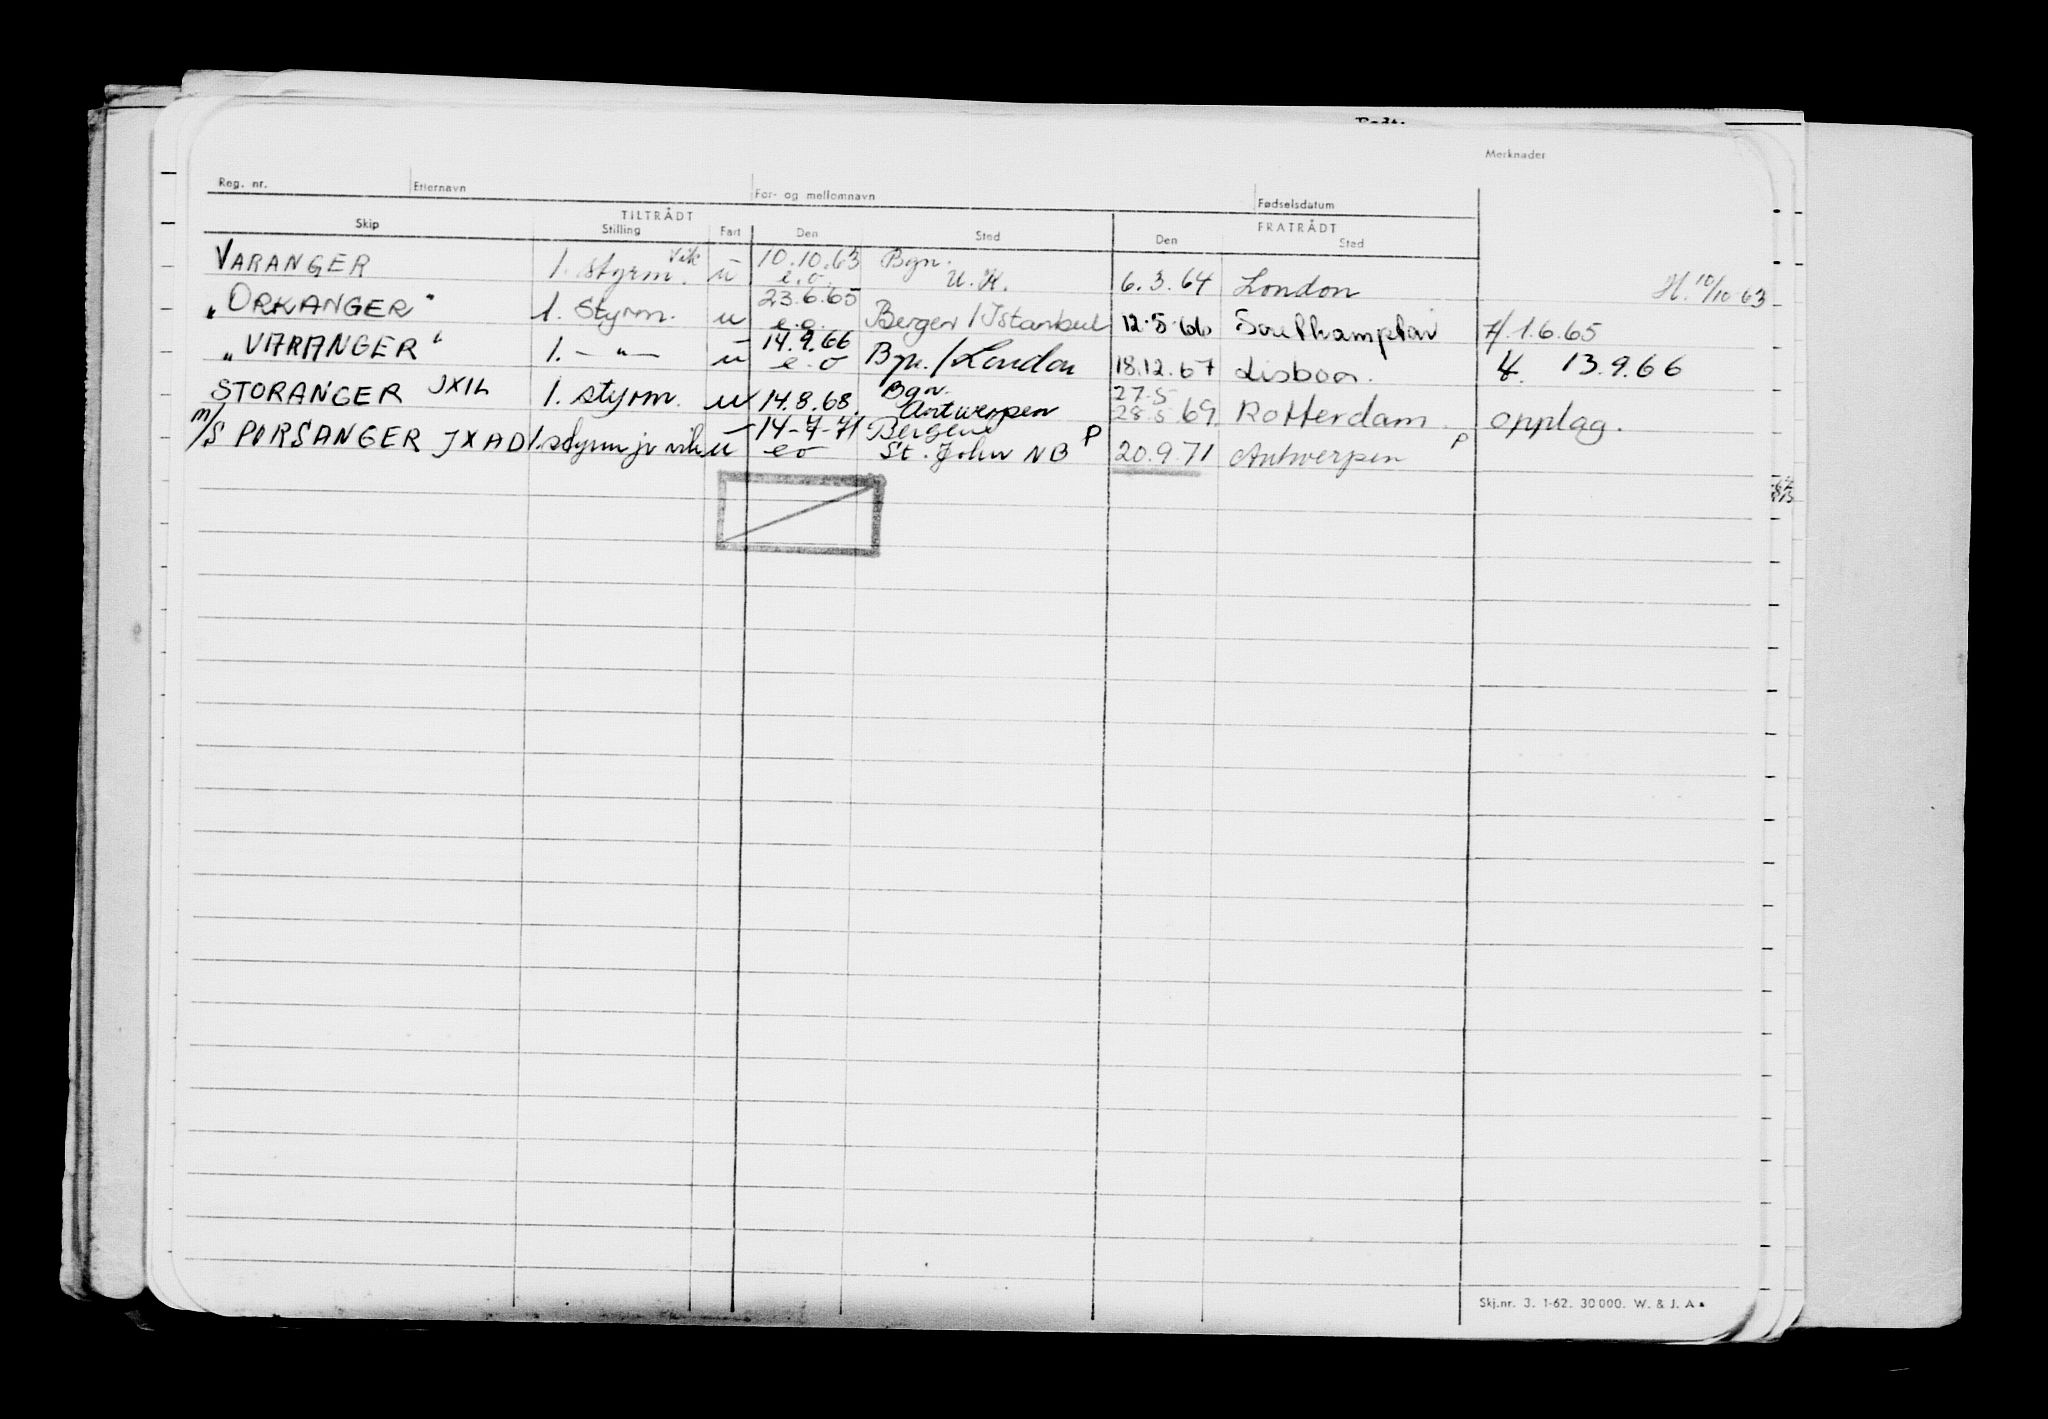 Merknader
Reg. nr. Etternavn For- og mellomnavn Fødselsdatum
TILTRÅDT FRATRÅDT
Skip Stilling Fart Den Sted Den Sted
VARANGER 1. styrm. vik u 10.10.63 e.o. Bgn. U.K. 6.3.64 London H. 10/10 63
"ORKANGER" 1. Styrm. u 23.6.65 e.o. Bergen / Istanbul 12.5.66 Southampton 1.6.65
"VARANGER" 1. — " — u 14.9.66 e.o Bgn. / London 18.12.67 Lisboa. 13.9.66
STORANGER JXIL 1. styrm. u 14.8.68. Bgn. Antwerpen 27.5 28.5 69. Rotterdam. opplag.
M/S PORSANGER JXAD 1. styrm jr vik u 14-7-71 eo Bergen St. John NB P 20.9.71 Antwerpen P
Skj.nr. 3. 1-62. 30 000. W. & J. A